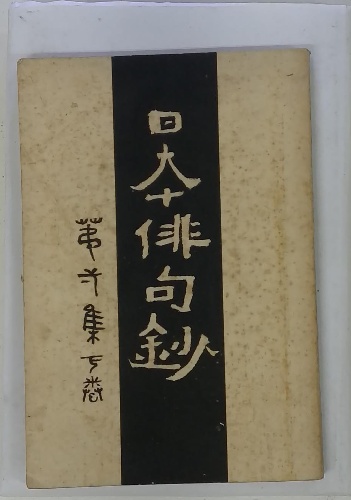 日本俳句鈔
第二集下卷